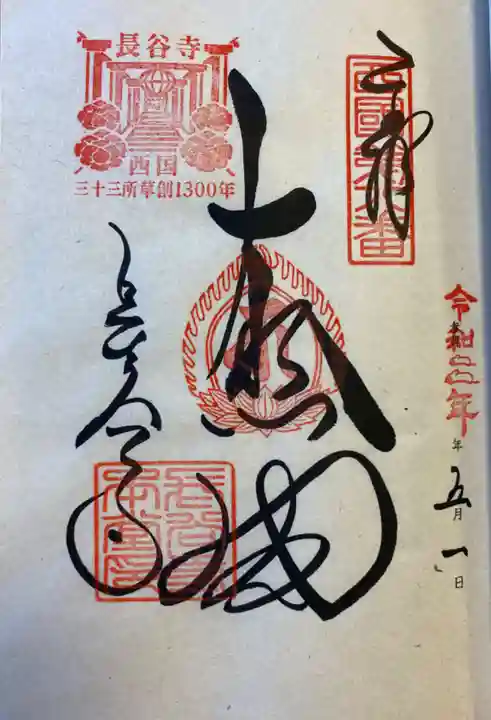 奉拝
西國第八番
令和元年
年五月一日
大悲閣
長谷寺
西国
三十三所草創1300年
長谷寺
長谷寺
本堂印